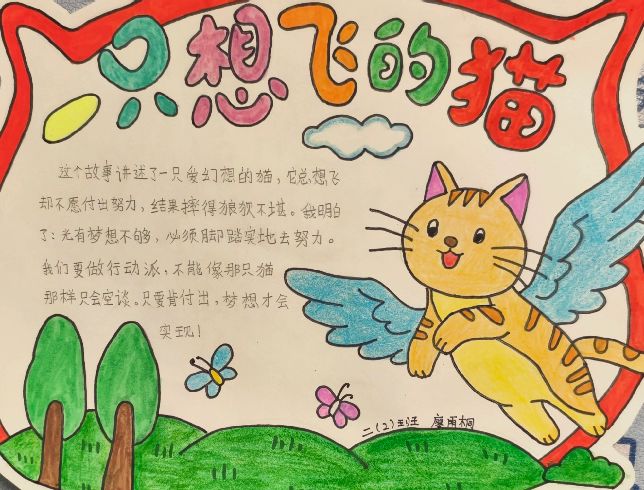 只想飞的猫
这个故事讲述了一只爱幻想的猫，它总想飞
却不愿付出努力，结果摔得狼狈不堪。我明白
了：光有梦想不够，必须脚踏实地去努力。
我们要做行动派，不能像那只猫
那样只会空谈。只要肯付出，梦想才会
实现！
二（2）班 廖雨桐